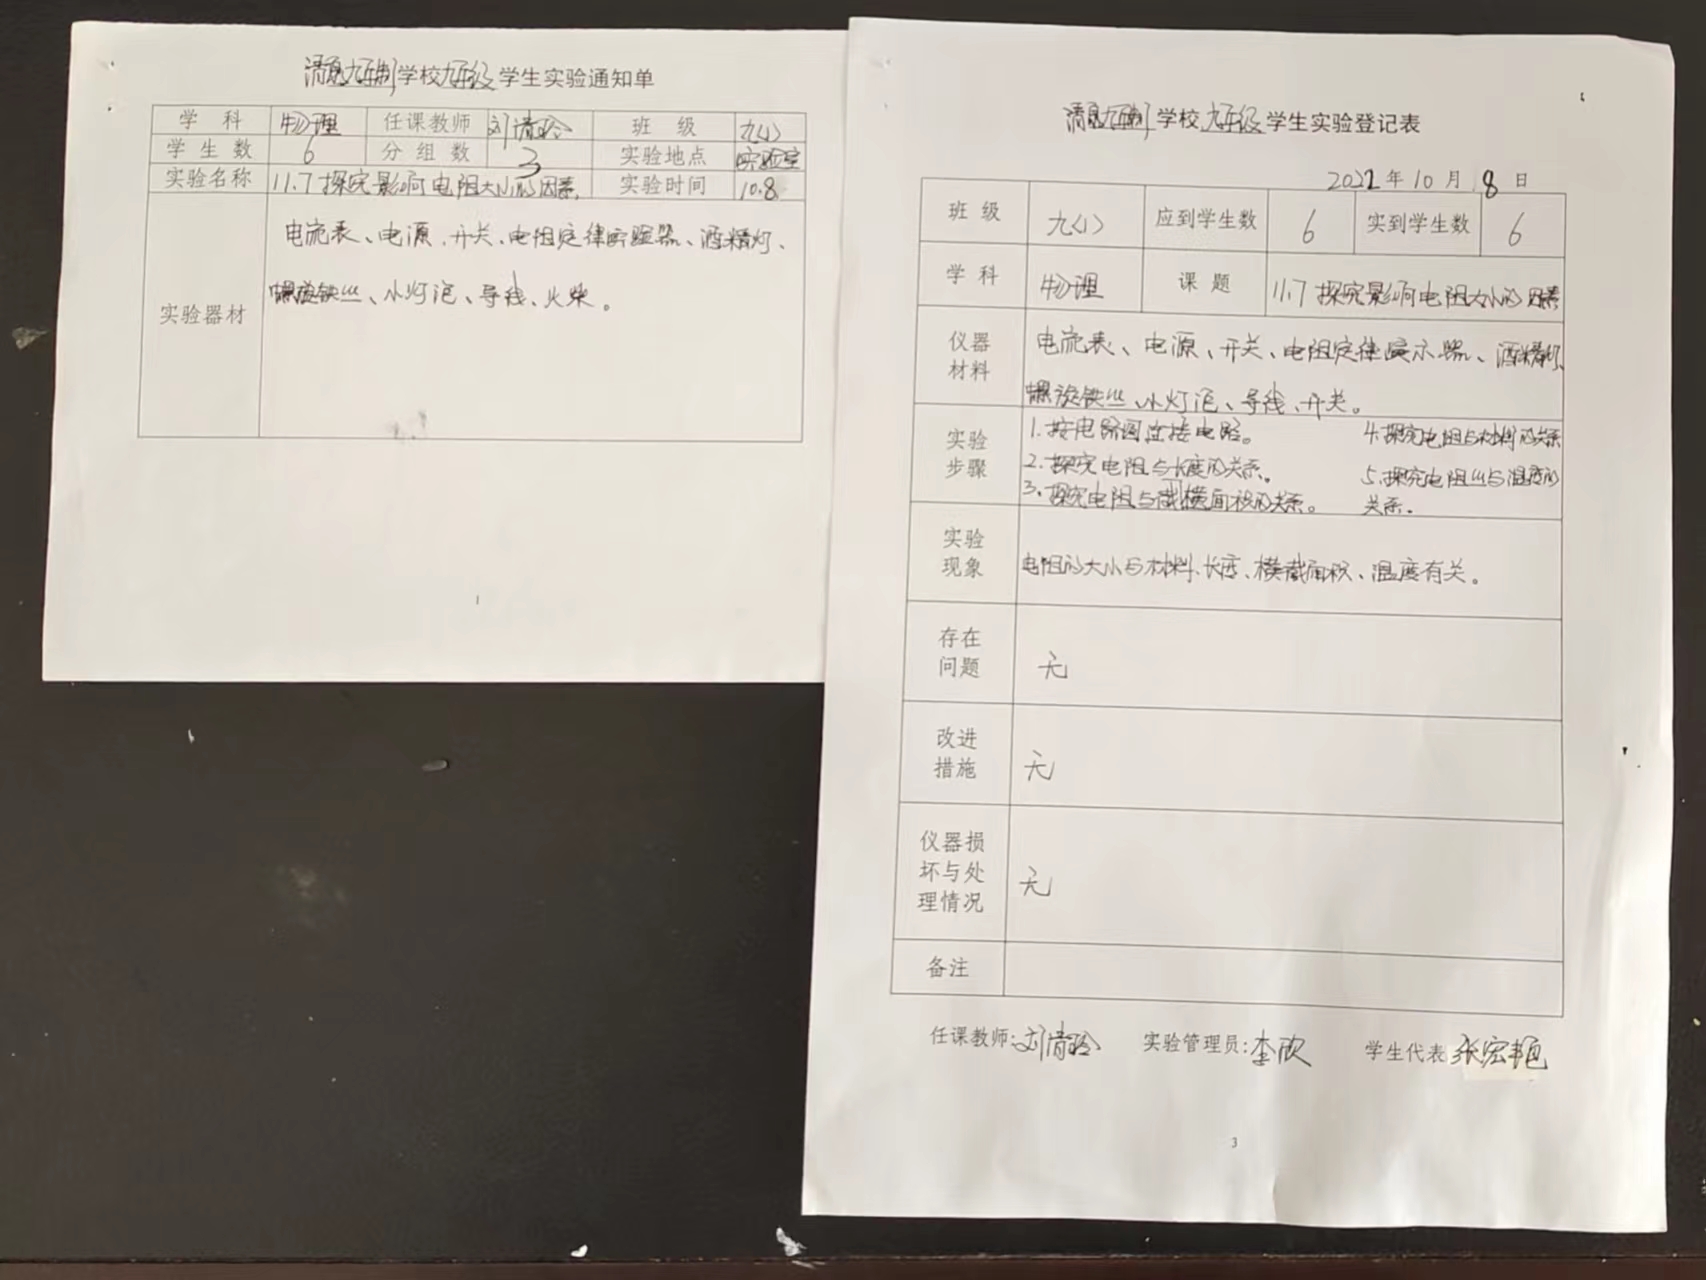 九年制学校九年级学生实验通知单
学科 物理 任课教师 刘清玲 班级 九(1)
学生数 6 分组数 3 实验地点 实验室
实验名称 11.7探究影响电阻大小的因素 实验时间 10.8
实验器材
电流表、电源、开关、电阻定律 器、酒精灯、
螺旋铁丝、小灯泡、导线、火柴。
1
九年制学校九年级学生实验登记表
2022年10月8日
班级 九(1) 应到学生数 6 实到学生数 6
学科 物理 课题 11.7探究影响电阻大小的因素
仪器材料
电流表、电源、开关、电阻定律演示器、酒精灯、
螺旋铁丝、小灯泡、导线、开关。
实验步骤
1.按电路图连接电路。
2.探究电阻与长度的关系。
3.探究电阻与横截面积的关系。
4.探究电阻与材料的关系
5.探究电阻丝与温度的
关系.
实验现象
电阻的大小与材料、长度、横截面积、温度有关。
存在问题 无
改进措施 无
仪器损坏与处理情况 无
备注
任课教师:刘清玲 实验管理员:李欣 学生代表 张宏艳
3